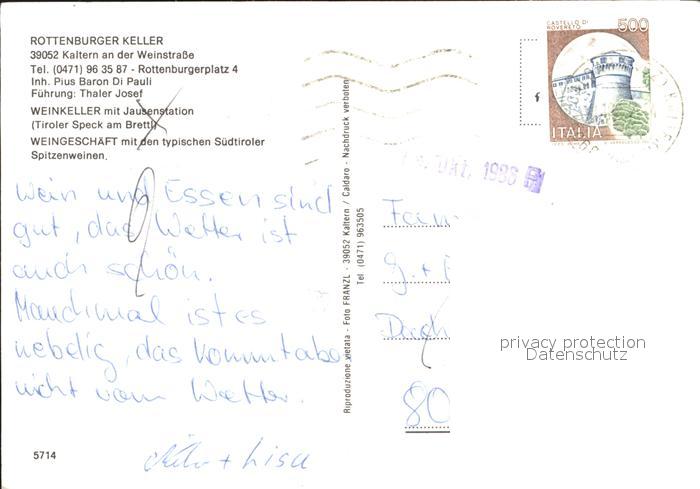 ROTTENBURGER KELLER
39052 Kaltern an der Weinstraße
Tel. (0471) 96 35 87 - Rottenburgerplatz 4
Inh. Pius Baron Di Pauli
Führung: Thaler Josef
WEINKELLER mit Jausenstation
(Tiroler Speck am Brettl)
WEINGESCHÄFT mit den typischen Südtiroler
Spitzenweinen.
Wein und Essen sind
gut, das Wetter ist
auch schön.
Manchmal ist es
nebelig, das kommt aber
nicht vom Wetter.
+ Lisa
5714
Riproduzione vietata - Foto FRANZL - 39052 Kaltern / Caldaro - Nachdruck verboten
Tel (0471) 963505
CASTELLO DI
ROVERETO
500
ITALIA
OKT. 1986
Fam
G. +
Dach
80
privacy protection
Datenschutz